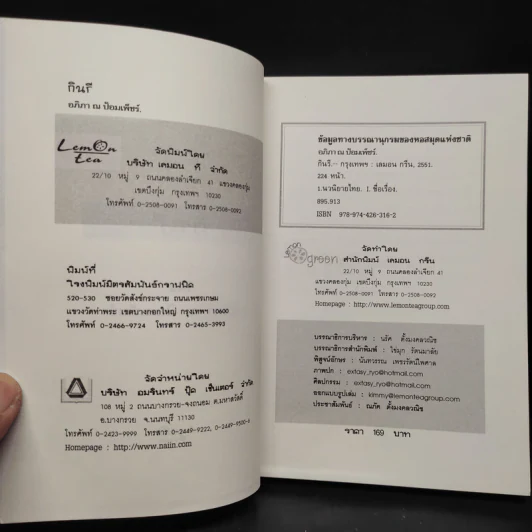 กินรี
อภิภา ณ ป้อมเพ็ชร์.
LemOn tea
จัดพิมพ์โดย
บริษัท เลมอน ที จำกัด
22/10 หมู่ 9 ถนนคลองลำเจียก 41 แขวงคลองกุ่ม
เขตบึงกุ่ม กรุงเทพฯ 10230
โทรศัพท์ 0-2508-0091 โทรสาร 0-2508-0092
พิมพ์ที่
โรงพิมพ์มิตรสัมพันธ์กราฟฟิค
520-530 ซอยวัดสังข์กระจาย ถนนเพชรเกษม
แขวงวัดท่าพระ เขตบางกอกใหญ่ กรุงเทพฯ 10600
โทรศัพท์ 0-2466-9724 โทรสาร 0-2465-3993
จัดจำหน่ายโดย
บริษัท อมรินทร์ บุ๊ค เซ็นเตอร์ จำกัด
108 หมู่ 2 ถนนบางกรวย-จงถนอม ต.มหาสวัสดิ์
อ.บางกรวย จ.นนทบุรี 11130
โทรศัพท์ 0-2423-9999 โทรสาร 0-2449-9222, 0-2449-9500-6
Homepage : http://www.naiin.com
ข้อมูลทางบรรณานุกรมของหอสมุดแห่งชาติ
อภิภา ณ ป้อมเพ็ชร์.
กินรี.-- กรุงเทพฯ : เลมอน กรีน, 2551.
224 หน้า.
1.นวนิยายไทย. I. ชื่อเรื่อง.
895.913
ISBN 978-974-426-316-2
green
จัดทำโดย
สำนักพิมพ์ เลมอน กรีน
22/10 หมู่ 9 ถนนคลองลำเจียก 41
แขวงคลองกุ่ม เขตบึงกุ่ม กรุงเทพฯ 10230
โทรศัพท์ 0-2508-0091 โทรสาร 0-2508-0092
Homepage : http://www.lemonteagroup.com
บรรณาธิการบริหาร : นรัค ตั้งมงคลวณิช
บรรณาธิการสำนักพิมพ์ : ไข่มุก รัตนมาลัย
พิสูจน์อักษร : นันทวรรณ เพชรรัตน์ไพศาล
ภาพปก : extasy_ryo@hotmail.com
ศิลปกรรม : extasy_ryo@hotmail.com
ออกแบบรูปเล่ม : kimmy@lemonteagroup.com
ประชาสัมพันธ์ : ณภัค ตั้งมงคลวณิช
ราคา 169 บาท